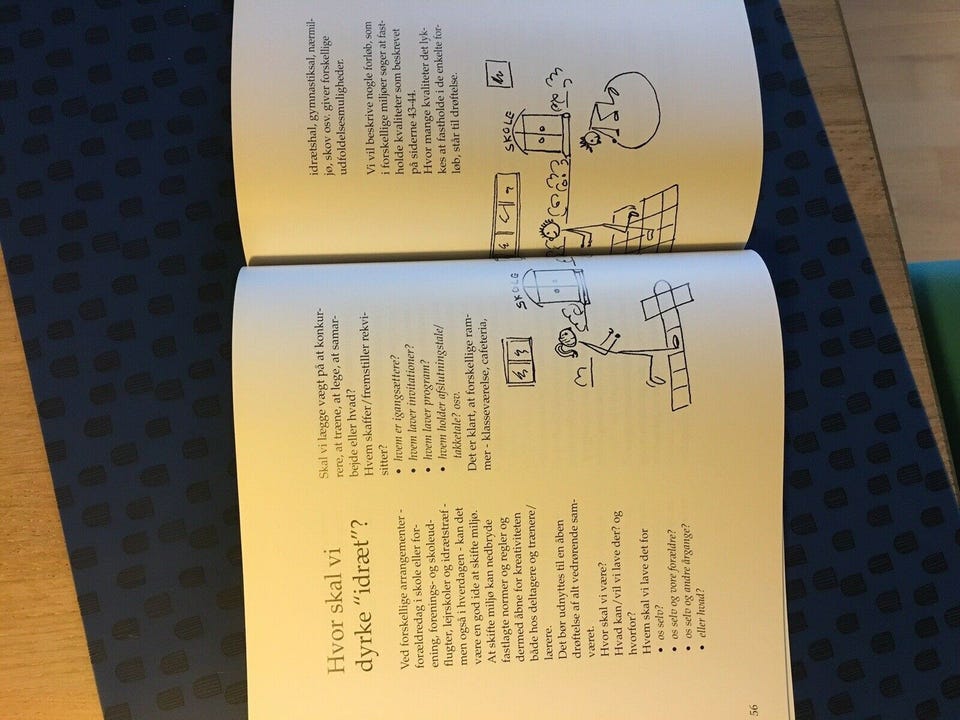 Hvor skal vi
dyrke "idræt"?
Ved forskellige arrangementer -
forældredag i skole eller for-
ening, forenings- og skoleud-
flugter, lejrskoler og idrætstræf -
men også i hverdagen - kan det
være en god ide at skifte miljø.
At skifte miljø kan nedbryde
fastlagte normer og regler og
dermed åbne for kreativiteten
både hos deltagere og trænere/
lærere.
Det bør udnyttes til en åben
drøftelse af alt vedrørende sam-
været.
Hvor skal vi være?
Hvad kan/vil vi lave der? og
hvorfor?
Hvem skal vi lave det for
• os selv?
• os selv og vore forældre?
• os selv og andre årgange?
• eller hvad?
Skal vi lægge vægt på at konkur-
rere, at træne, at lege, at samar-
bejde eller hvad?
Hvem skaffer/fremstiller rekvi-
sitter?
• hvem er igangsættere?
• hvem laver invitationer?
• hvem laver program?
• hvem holder afslutningstale/
takketale? osv.
Det er klart, at forskellige ram-
mer - klasseværelse, cafeteria,
SKOLE
56
idrætshal, gymnastiksal, nærmil-
jø, skov osv. giver forskellige
udfoldelsesmuligheder.
Vi vil beskrive nogle forløb, som
i forskellige miljøer søger at fast-
holde kvaliteter som beskrevet
på siderne 43-44.
Hvor mange kvaliteter det lyk-
kes at fastholde i de enkelte for-
løb, står til drøftelse.
SKOLE